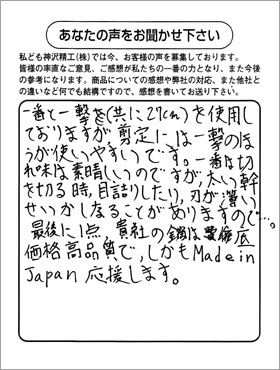 あなたの声をお聞かせ下さい
私ども神沢精工(株)では今、お客様の声を募集しております。
皆様の率直なご意見、ご感想が私たちの一番の力となり、また今後
の参考になります。商品についての感想や弊社の対応、また他社と
の違いなど何でも結構ですので、感想を書いてお送り下さい。
一番と一撃を(共に27cm)を使用し
ておりますが剪定には一撃のほ
うが使いやすいです。一番は切
れ味は素晴しいのですが、太い幹
を切る時、目詰りしたり、刃が薄い
せいかしなることがありますので…。
最後に1点、貴社の鋸は
価格高品質で、しかもMade in
Japan 応援します。